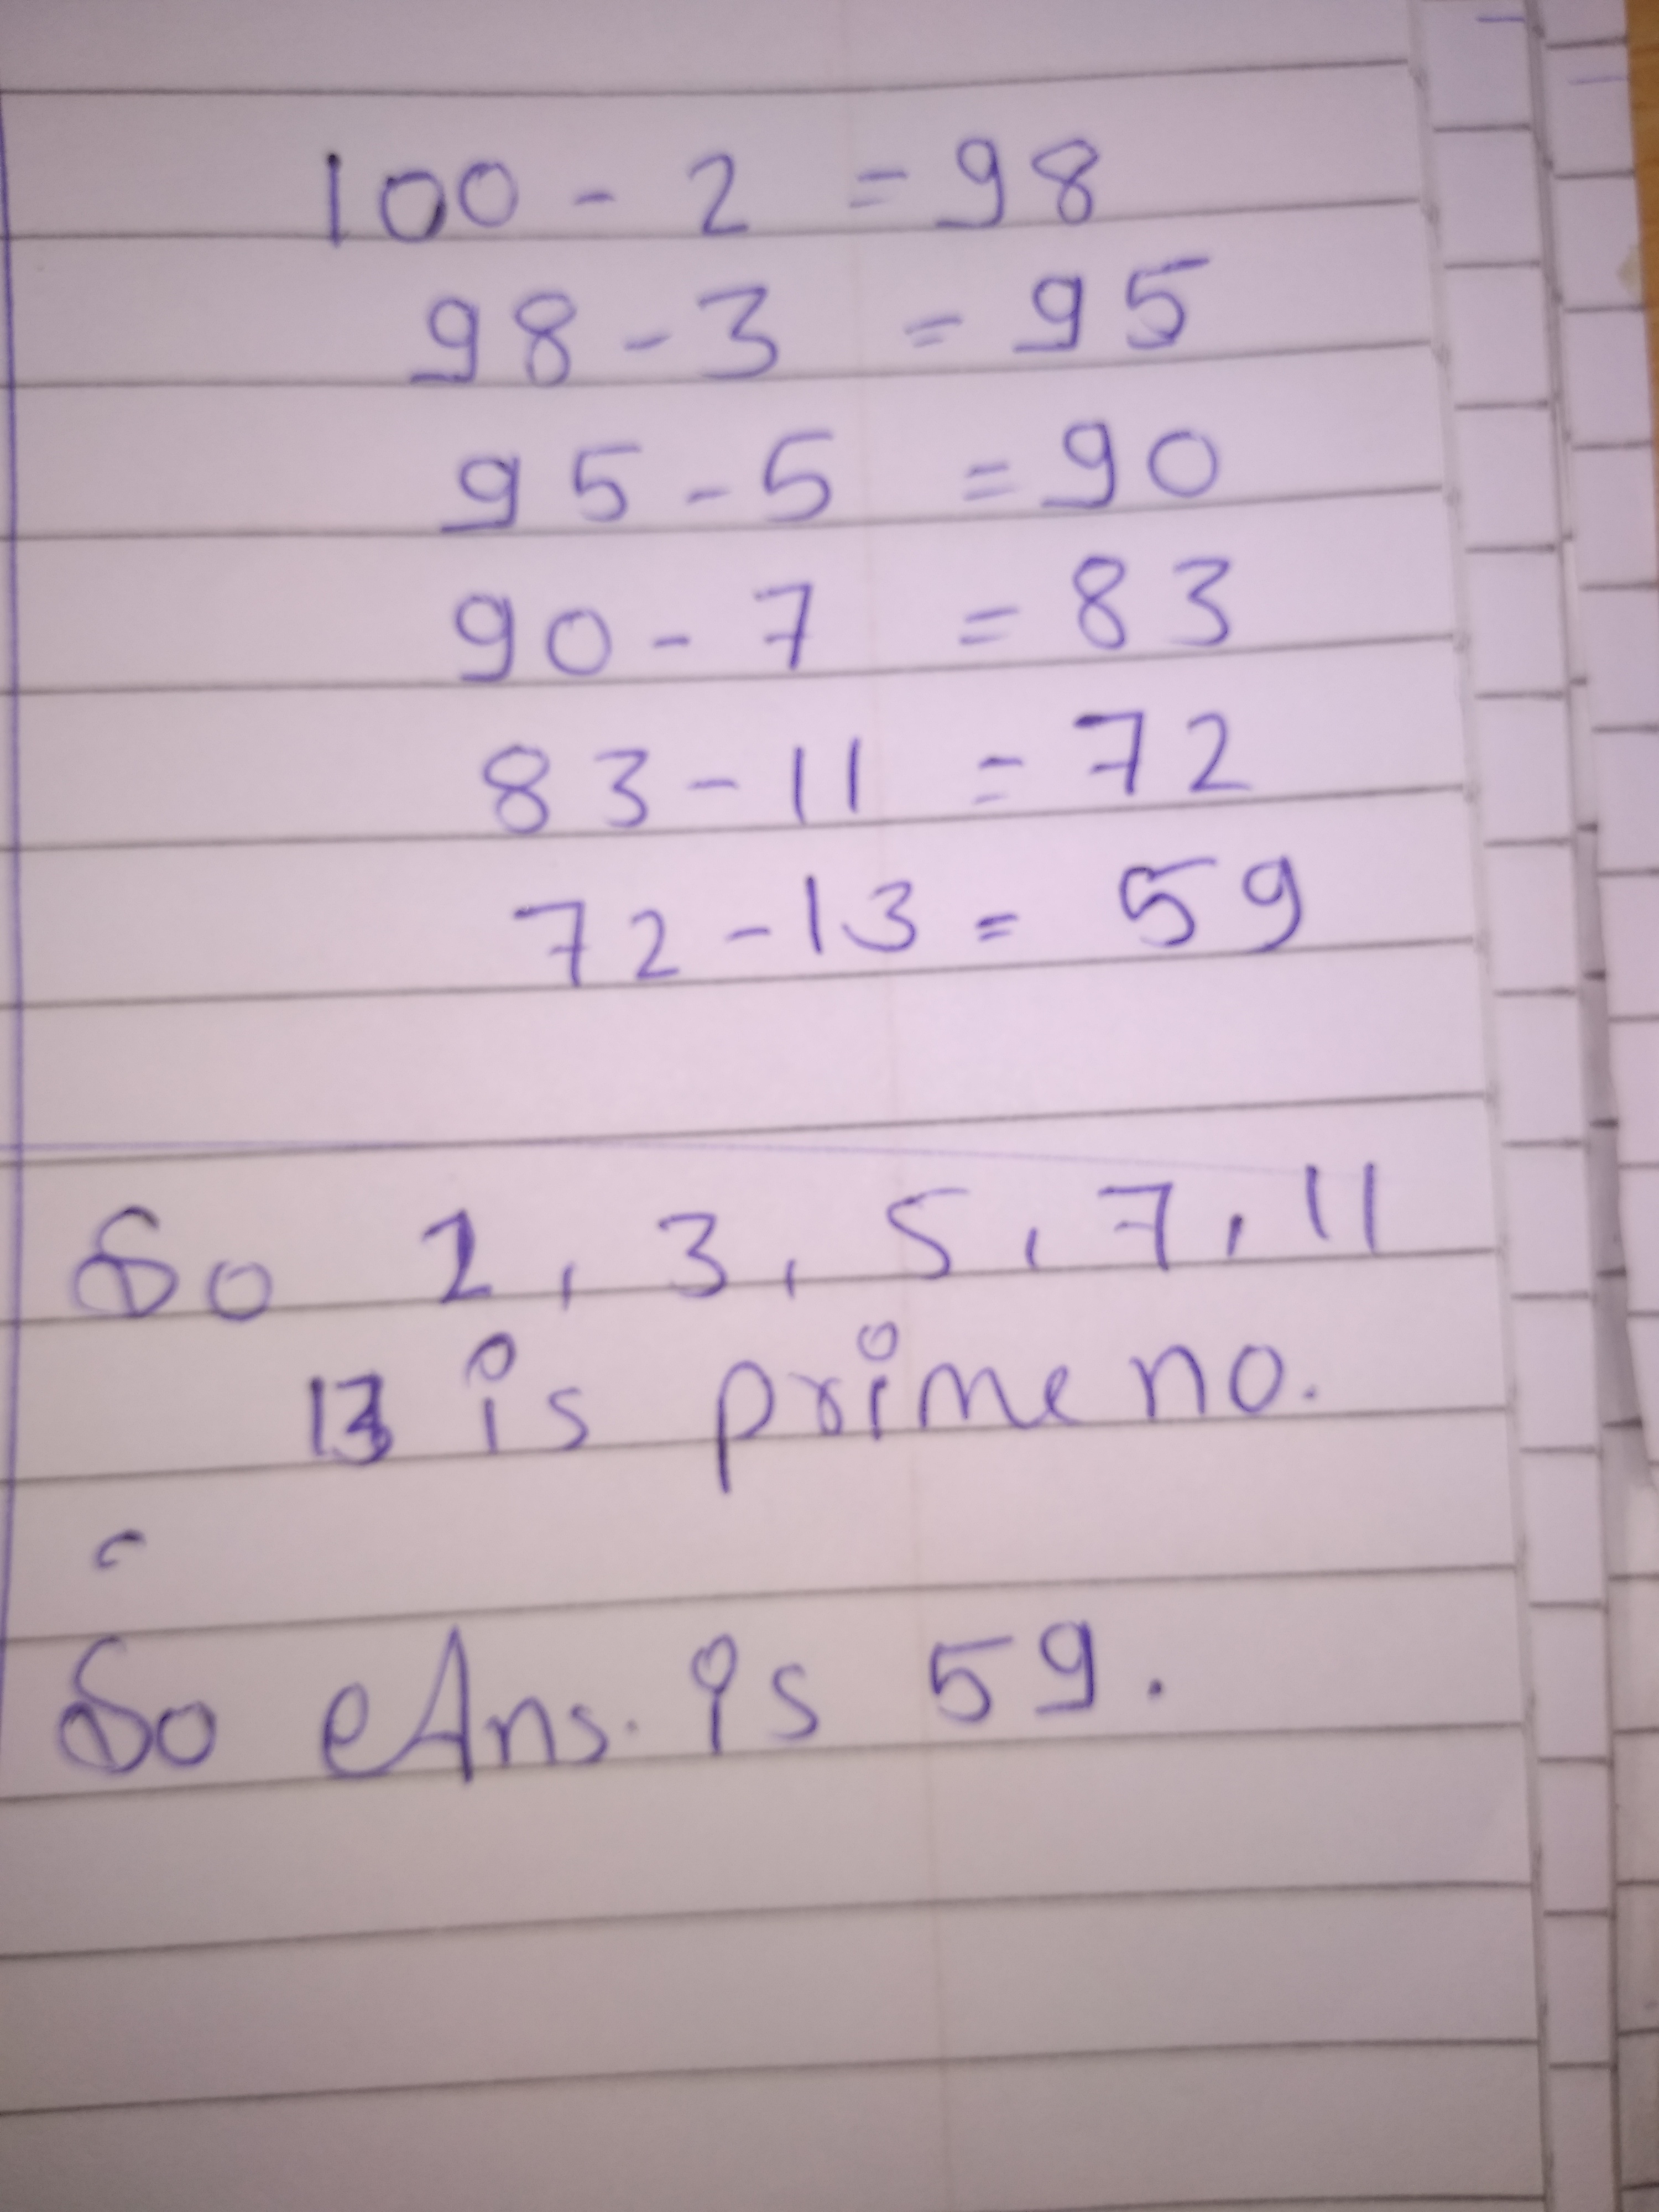 100 - 2 = 98
98 - 3 = 95
95 - 5 = 90
90 - 7 = 83
83 - 11 = 72
72 - 13 = 59
So 2, 3, 5, 7, 11
13 is prime no.
So Ans. is 59.